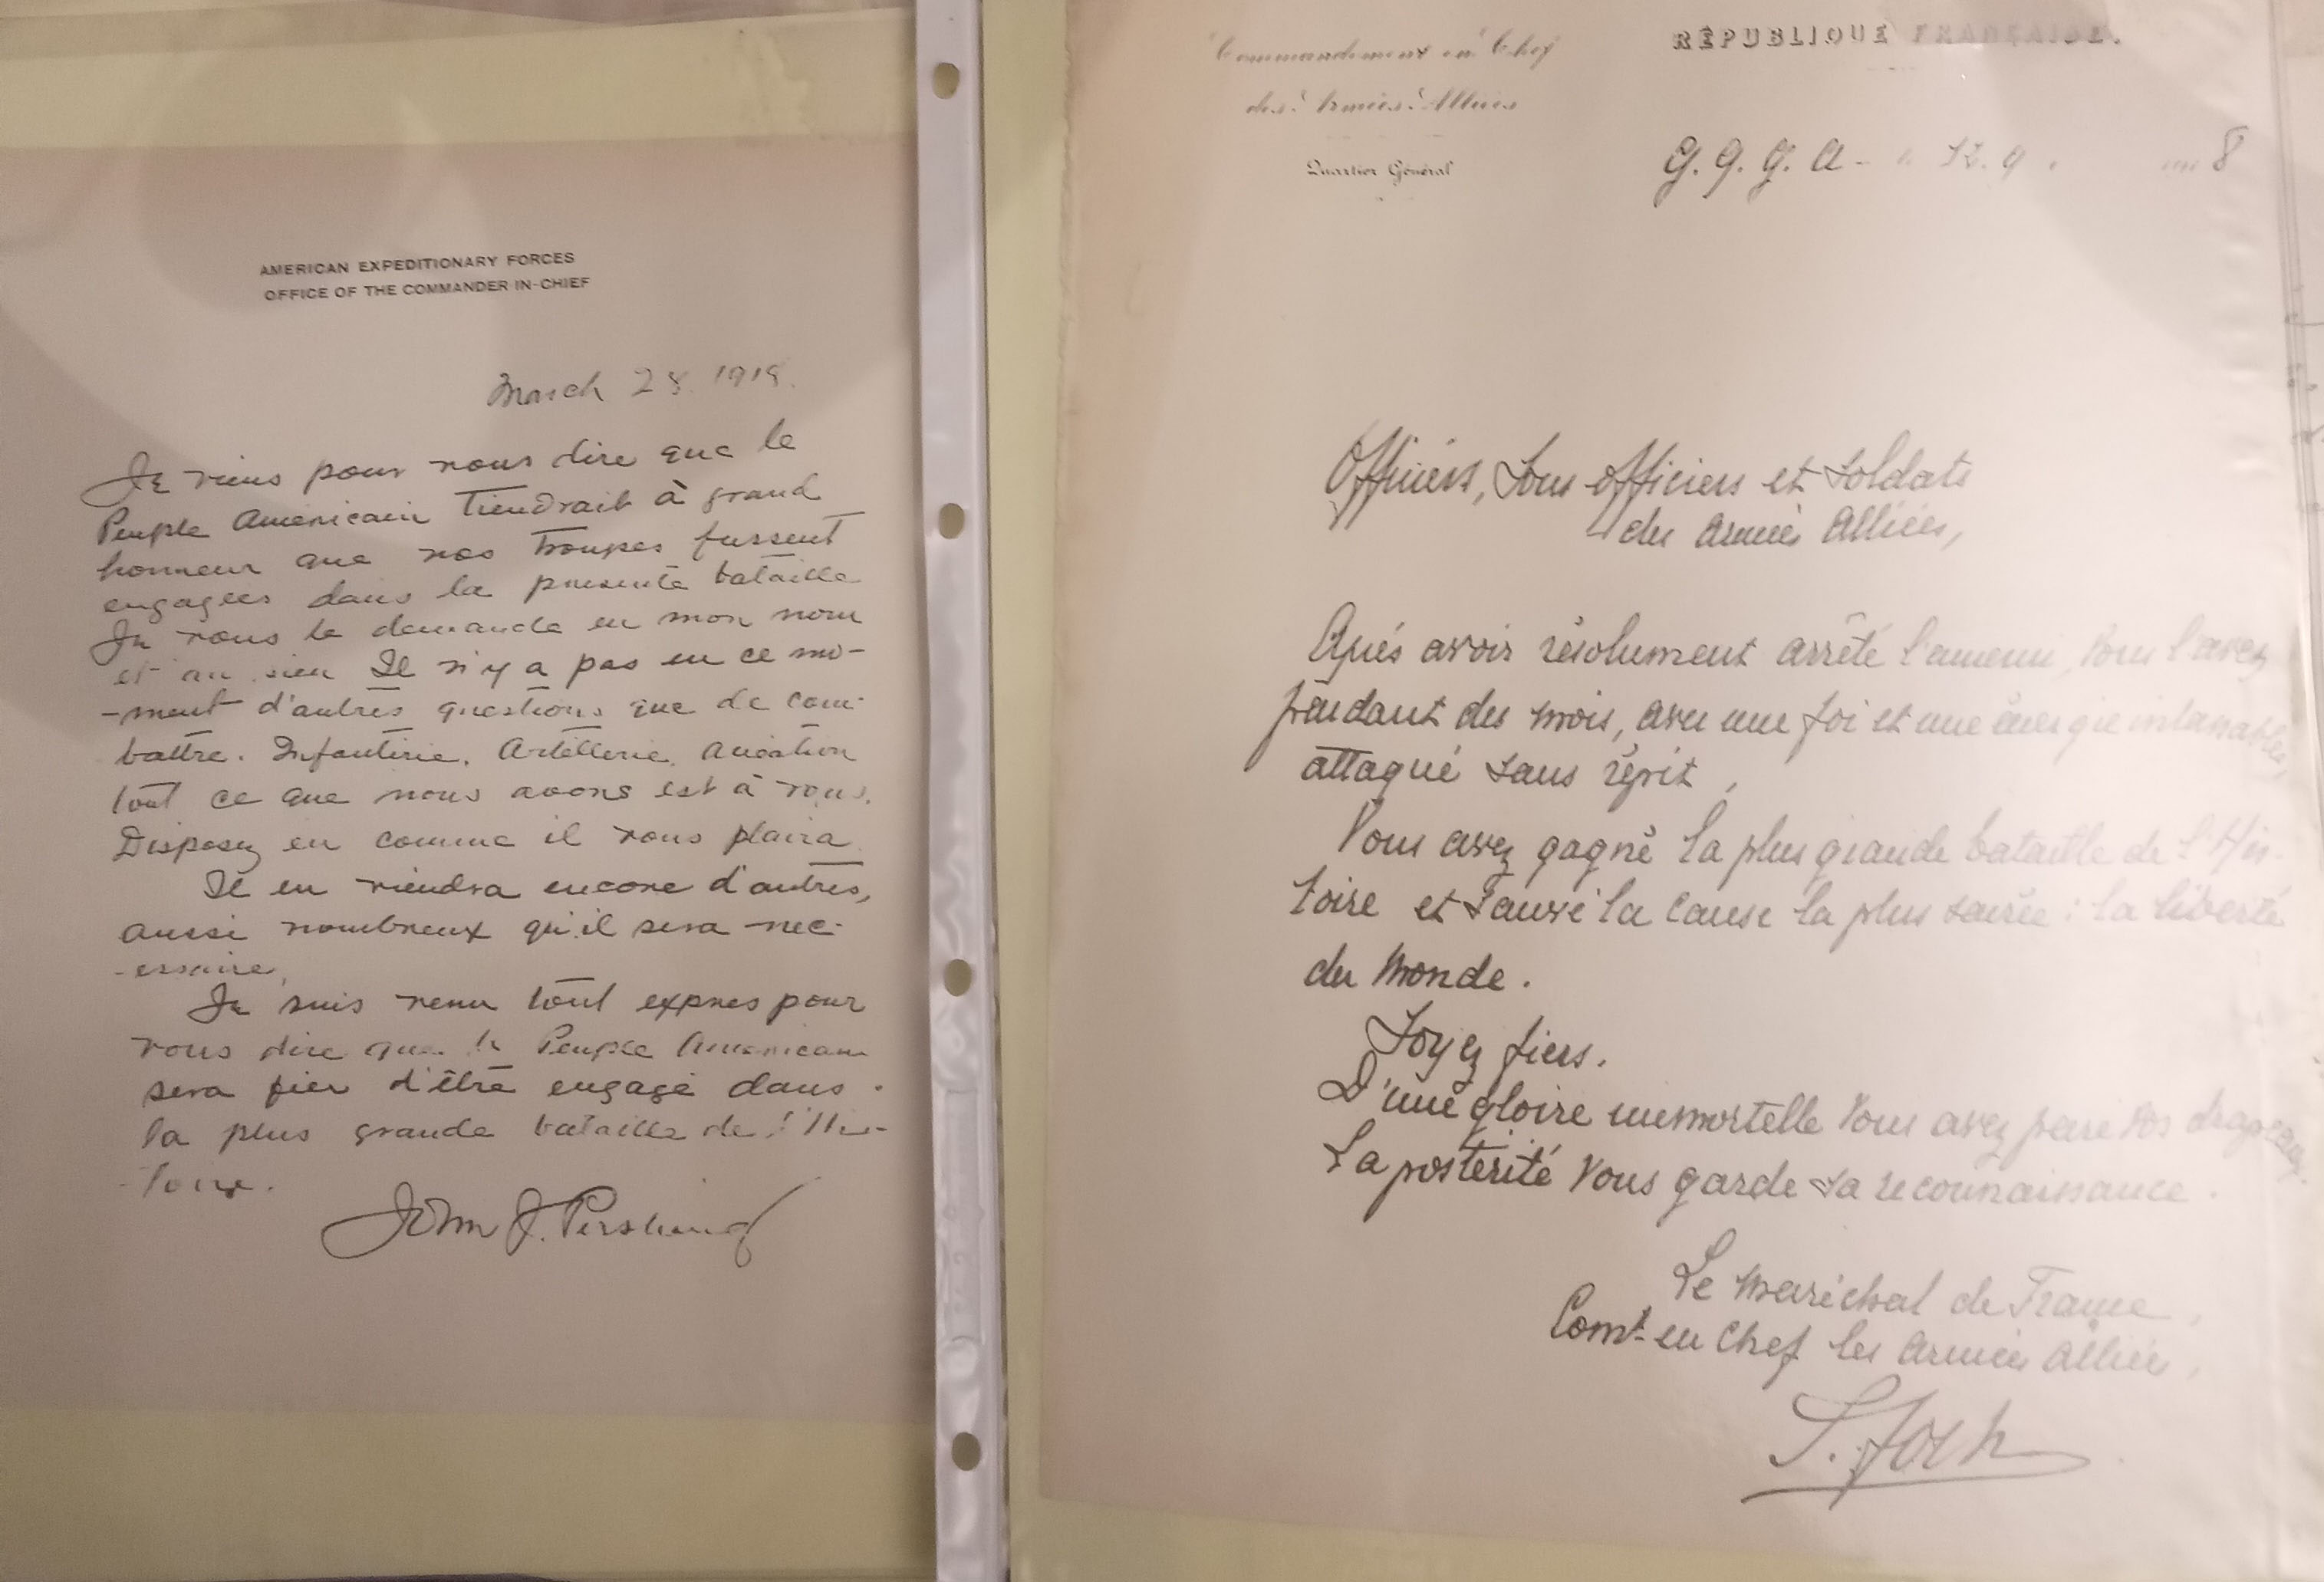 AMERICAN EXPEDITIONARY FORCES
OFFICE OF THE COMMANDER-IN-CHIEF
March 28. 1918.
Je viens pour vous dire que le
Peuple Américain tiendrait à grand
honneur que nos troupes fussent
engagées dans la présente bataille
Je vous le demande en mon nom
et au sien Il n'y a pas en ce mo-
-ment d'autres questions que de com-
battre. Infanterie. Artillerie. Aviation
tout ce que nous avons est à vous.
Disposez en comme il vous plaira.
Il en viendra encore d'autres,
aussi nombreux qu'il sera nec-
-essaire.
Je suis venu tout expres pour
vous dire que le Peuple Americain
sera fier d'être engagé dans
la plus grande bataille de l'His-
-toire.
John J. Pershing
Commandement en Chef
des Armées Alliées
Quartier Général
RÉPUBLIQUE FRANÇAISE.
G. Q. G. A - 12. 8
Officiers, Sous officiers et Soldats
des Armées Alliées,
Après avoir résolument arrêté l'ennemi, vous l'avez
pendant des mois, avec une foi et une énergie inlassables,
attaqué sans répit.
Vous avez gagné la plus grande bataille de l'His
toire et sauvé la cause la plus sacrée : la liberté
du Monde.
Soyez fiers.
D'une gloire immortelle vous avez paré vos drapeaux.
La postérité vous garde sa reconnaissance.
Le Maréchal de France,
Comt en Chef les Armées Alliées,
F. Foch